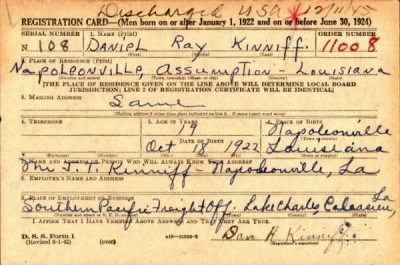 Discharged USA 12/11/45
REGISTRATION CARD—(Men born on or after January 1, 1922 and on or before June 30, 1924)
SERIAL NUMBER 1. NAME (Print) ORDER NUMBER
N 108 DANIEL Ray KINNIFF 11008
(First) (Middle) (Last)
2. PLACE OF RESIDENCE (Print)
Napoleonville Assumption Louisiana
[THE PLACE OF RESIDENCE GIVEN ON THE LINE ABOVE WILL DETERMINE LOCAL BOARD
JURISDICTION; LINE 2 OF REGISTRATION CERTIFICATE WILL BE IDENTICAL]
3. MAILING ADDRESS
Same
4. TELEPHONE 5. AGE IN YEARS 6. PLACE OF BIRTH
19 Napoleonville
DATE OF BIRTH
Oct 8 1922 Louisiana
7. NAME AND ADDRESS OF PERSON WHO WILL ALWAYS KNOW YOUR ADDRESS
Mr J. T. Kinniff - Napoleonville, La
8. EMPLOYER'S NAME AND ADDRESS
9. PLACE OF EMPLOYMENT OR BUSINESS
Southern Pacific Freight Off. Lake Charles, Calcasieu, La
I AFFIRM THAT I HAVE VERIFIED ABOVE ANSWERS AND THAT THEY ARE TRUE.
D. S. S. Form 1
(Revised 6-1-42) Dan R Kinniff